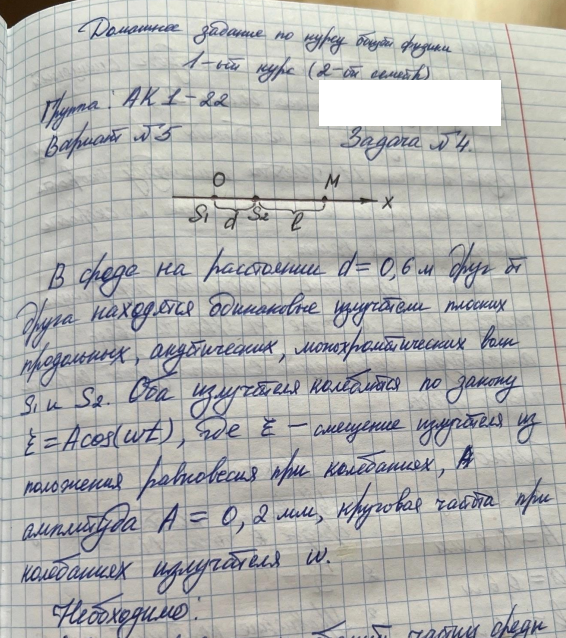 Домашнее задание по курсу общей физики
1-ый курс (2-ой семестр)
Группа: АК 1-22
Вариант №5
Задача №4.
O M
S1 d S2 l x
В среде на расстоянии d = 0,6 м друг от
друга находятся одинаковые излучатели плоских
продольных, акустических, монохроматических волн
S1 и S2. Оба излучателя колеблются по закону
ξ = Acos(ωt), где ξ – смещение излучателя из
положения равновесия при колебаниях, А
амплитуда A = 0,2 мм, круговая частота при
колебаниях излучателя ω.
Необходимо:
частиц среды